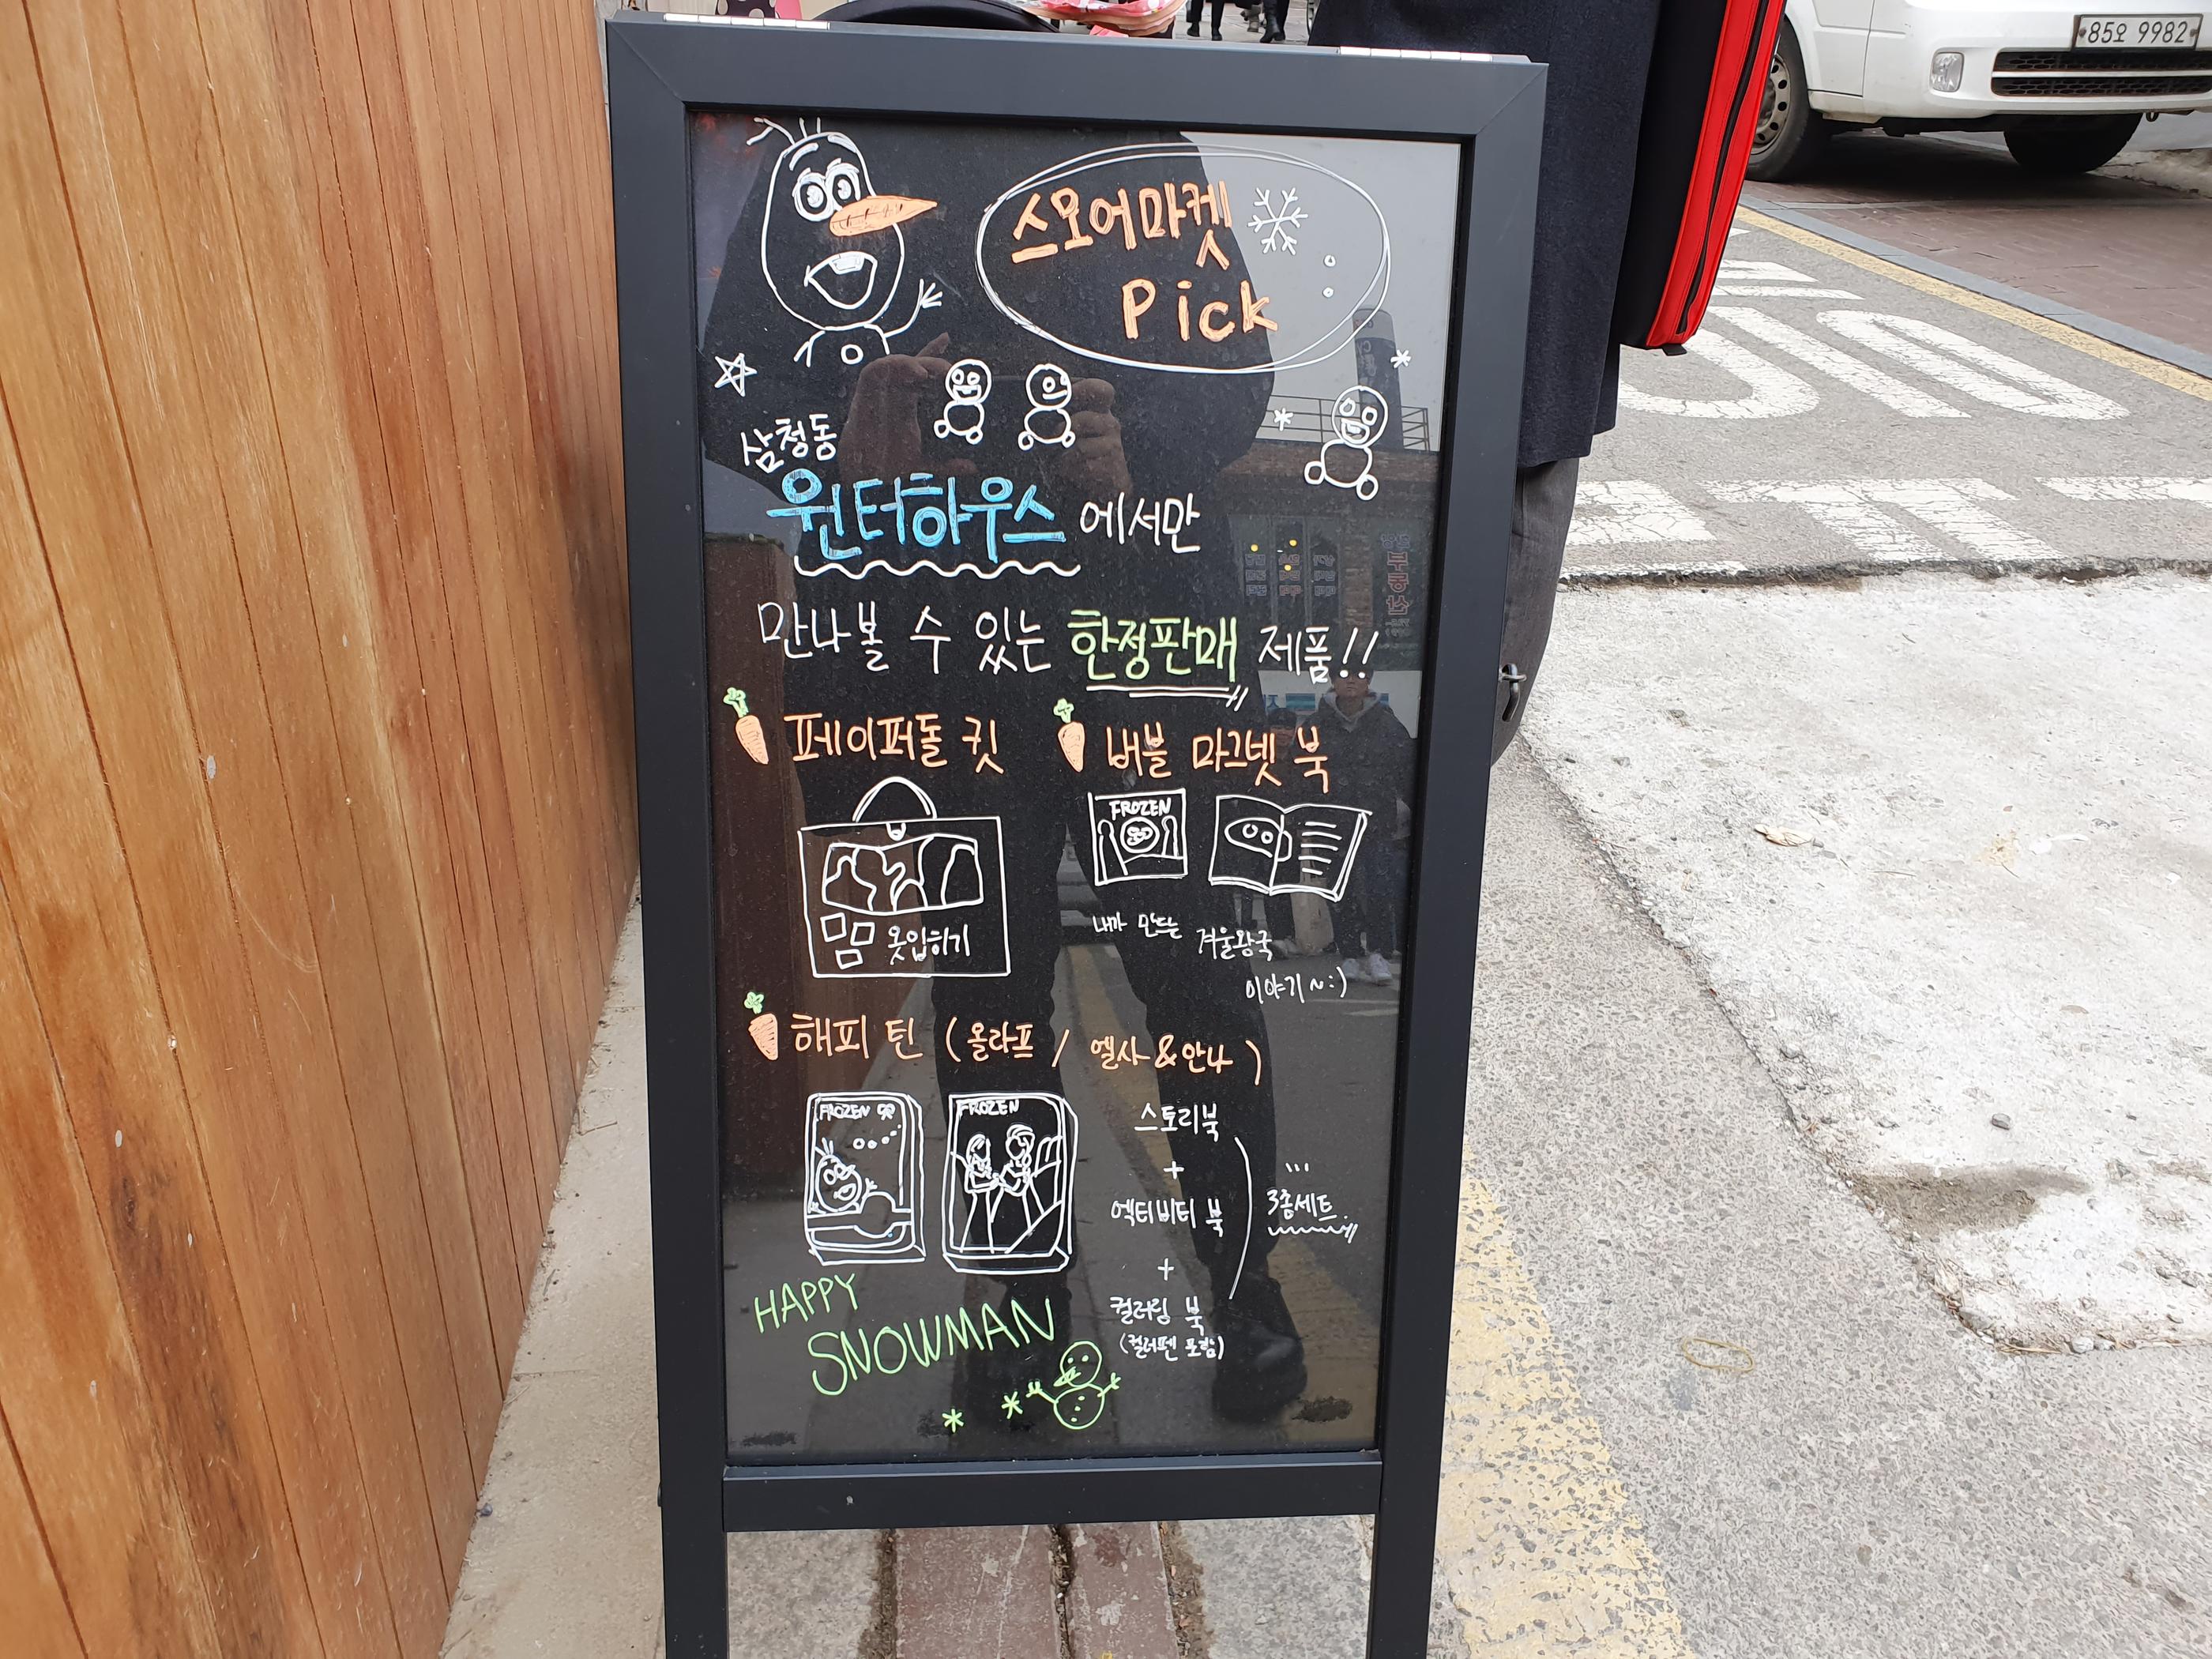 85오 9982
스오어마켓
Pick
삼청동
윈터하우스에서만
만나볼 수 있는 한정판매 제품!!
페이퍼돌 킷
버블 마그넷 북
FROZEN
옷입히기
내가 만드는
겨울왕국
이야기~:)
해피 틴 (올라프 / 엘사&안나)
FROZEN
FROZEN
스토리북
+
엑티비티 북
+
컬러링 북
(컬러펜 포함)
3종세트
HAPPY
SNOWMAN